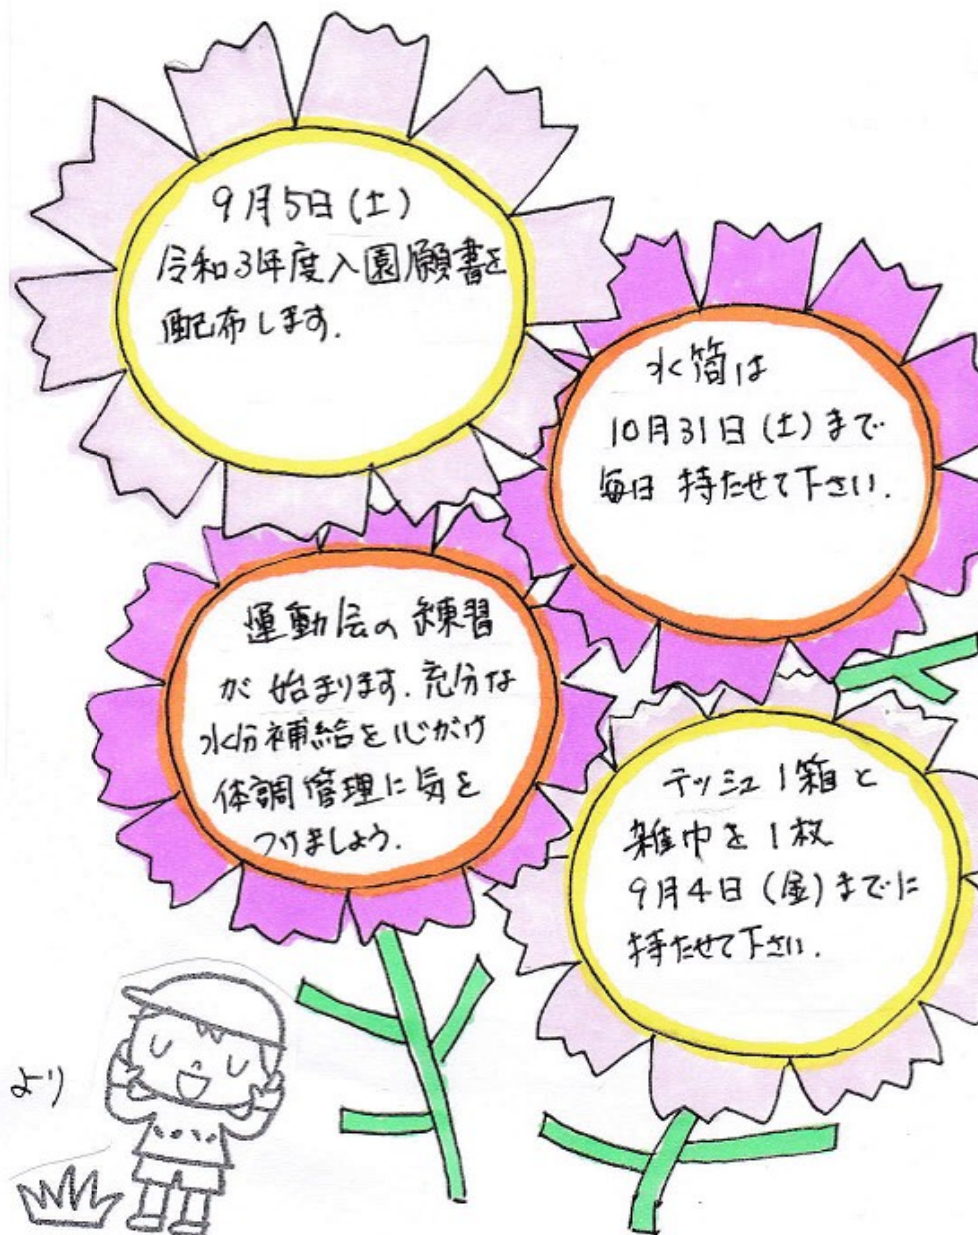 9月5日(土)
令和3年度入園願書を
配布します.
水筒は
10月31日(土)まで
毎日 持たせて下さい.
運動会の練習
が 始まります.充分な
水分補給を心がけ
体調管理に気を
つけましょう.
テッシュ1箱と
雑巾を1枚
9月4日(金)までに
持たせて下さい.
より